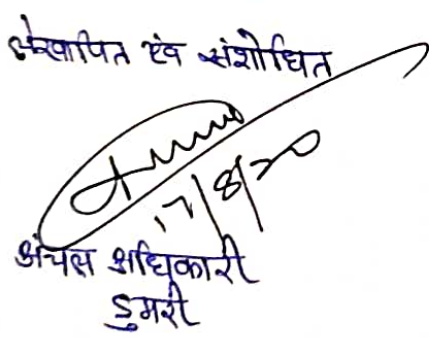 लेखापित एवं संशोधित
17/8/20
अंचल अधिकारी
डुमरी